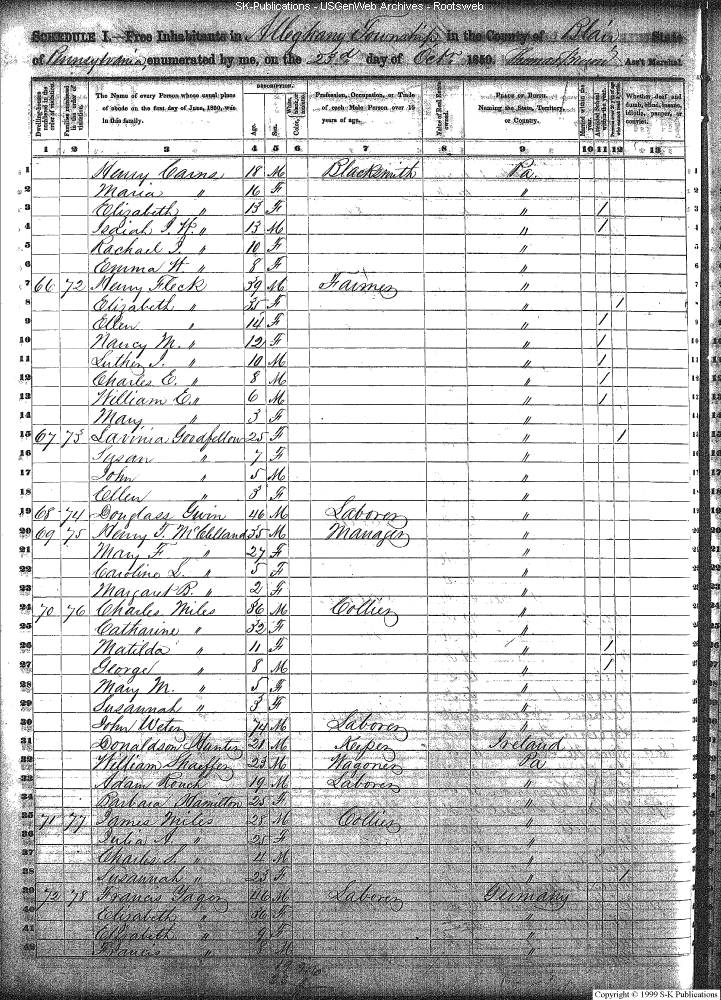 SK-Publications - USGenWeb Archives - Rootsweb
SCHEDULE I.—Free Inhabitants in Alleghany Township in the County of Blair State
of Pennsylvania, enumerated by me, on the 23d day of Octr 1850. Ass't Marshal
Dwelling-houses numbered in the order of visitation.
Families numbered in the order of visitation.
The Name of every Person whose usual place of abode on the first day of June, 1850, was in this family.
DESCRIPTION.
Age.
Sex.
Profession, Occupation, or Trade of each Male Person over 15 years of age.
Value of Real Estate owned.
PLACE OF BIRTH. Naming the State, Territory, or Country.
Married within the year.
Attended School within the year.
Whether deaf and dumb, blind, insane, idiotic, pauper, or convict.
1 2 3 4 5 6 7 8 9 10 11 12 13
1 Harry Carns 18 M Blacksmith Pa. 1
2 Maria " 16 F "
3 Elizabeth " 13 F " / 3
4 Isaiah I. H. " 13 M " / 4
5 Rachael J. " 10 F " 5
6 Emma H. " 8 F "
7 66 72 Henry Fleck 39 M Farmer " 7
8 Elizabeth " 35 F " /
9 Ellen " 14 F " /
10 Nancy M. " 12 F " / 10
11 Luther I. " 10 M " / 11
12 Charles E. " 8 M " / 12
13 William E. " 6 M " / 13
14 Mary " 3 F " 14
15 67 73 Lavinia Goodfellow 25 F " / 15
16 Susan " 7 F " 16
17 John " 5 M " 17
18 Ellen " 3 F " 18
19 68 74 Douglass Guin 46 M Laborer " 19
20 69 75 Henry T. McClelland 35 M Manager " 20
21 Mary F. " 27 F " 21
22 Caroline L. " 5 F " 22
23 Margaret B. " 2 F " 23
24 70 76 Charles Miles 36 M Collier " 24
25 Catharine " 32 F " 25
26 Matilda " 11 F " / 26
27 George " 8 M " / 27
28 Mary M. " 5 F " 28
29 Susannah " 3 F " 29
30 John Weter 74 M Laborer " 30
31 Donaldson Hunter 21 M Keeper Ireland 31
32 William Shaeffer 23 M Wagoner Pa 32
33 Adam Rouch 19 M Laborer " 33
34 Barbara Hamilton 25 F "
35 71 77 James Miles 28 M Collier "
36 Julia A. " 25 F "
37 Charles S. " 4 M "
38 Susannah " 23 F " /
39 72 78 Francis Yagor 46 M Laborer Germany
40 Elizabeth " 36 F "
41 Elizabeth " 9 F "
42 Francis " 8 M "
Copyright © 1999 S-K Publications